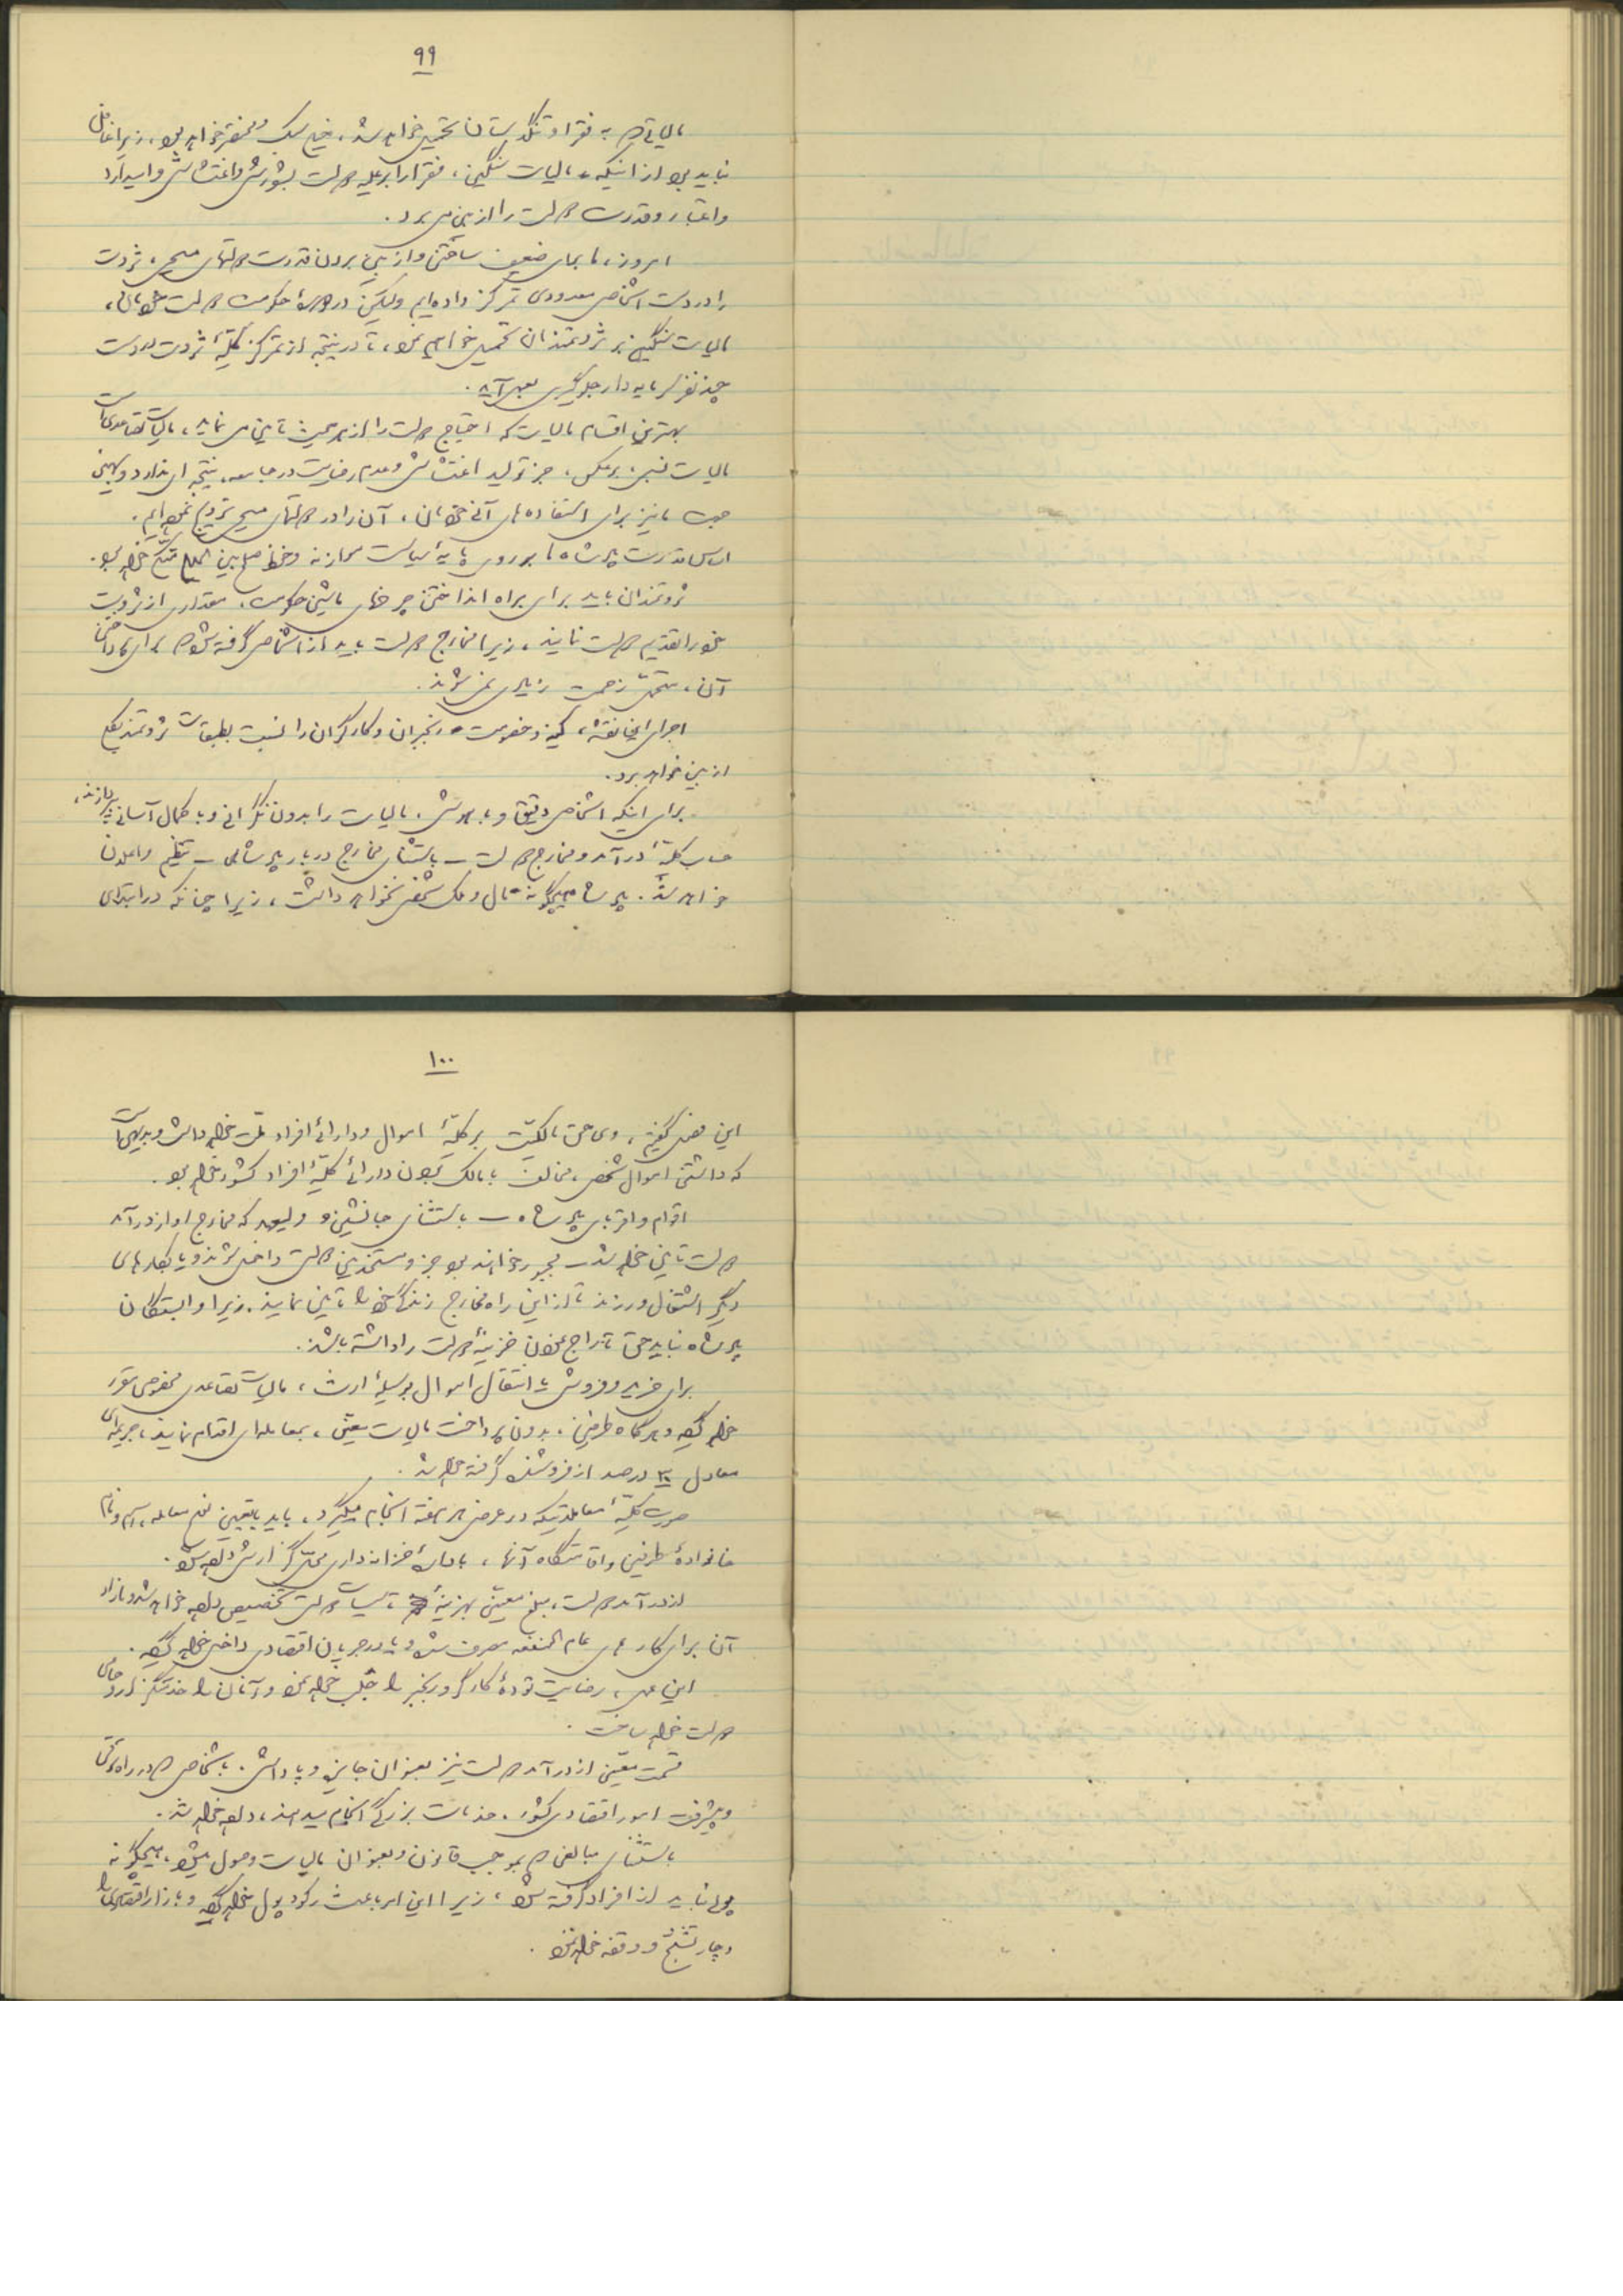 ۹۹
مالیاتیکه به فقرا و تنگدستان تحمیل خواهد شد، خیلی سبک و مختصر خواهد بود، زیرا غافل
نباید بود از اینکه مالیات سنگین، فقرا را بر علیه دولت بشورش و اغتشاش وا میدارد
و اعتبار و قدرت دولت را از بین می برد.
امروز، ما برای ضعیف ساختن و از بین بردن قدرت دولتهای مسیحی، ثروت
را در دست اشخاص معدودی تمرکز داده ایم ولیکن در دورهٔ حکومت دولت خودمان،
مالیات سنگین بر ثروتمندان تحمیل خواهیم نمود، تا در نتیجه از تمرکز کلیهٔ ثروت در دست
چند نفر سرمایه دار جلوگیری بعمل آید.
بهترین اقسام مالیات که احتیاج دولت را از هر حیث تأمین می نماید، مالیات تصاعدی است
مالیات نسبی برعکس، جز تولید اغتشاش و عدم رضایت در جامعه، نتیجه ای ندارد و بهمین
جهت ما نیز برای استفاده های آتی خودمان، آن را در دولتهای مسیحی ترویج نموده ایم.
اساس قدرت پادشاه ما بر روی پایهٔ سیاست موازنه و حفظ صلح بین المللی متکی خواهد بود.
ثروتمندان باید برای براه انداختن چرخهای ماشین حکومت، مقداری از ثروت
خود را تقدیم دولت نمایند، زیرا مخارج دولت باید از اشخاصی گرفته شود که برای پرداختن
آن، متحمل زحمت زیادی نمی شوند.
اجرای این نقشه، کینه و خصومت رنجبران و کارگران را نسبت بطبقات ثروتمند بکلی
از بین خواهد برد.
برای اینکه اشخاص دقیق و باهوش، مالیات را بدون نگرانی و با کمال آسانی بپردازند،
حساب کلیهٔ درآمد و مخارج دولت – باستثنای مخارج دربار پادشاهی – تنظیم و اعلان
خواهد شد. پادشاه هیچگونه مال و ملک شخصی نخواهد داشت، زیرا چنانکه در ابتدای
۱۰۰
این فصل گفتیم، وی حق مالکیت بر کلیهٔ اموال و دارائی افراد ملت خواهد داشت و بدیهی است
که داشتن اموال شخصی، مخالف با مالک بودن دارائی کلیهٔ افراد کشور خواهد بود.
اقوام و اقربای پادشاه – باستثنای جانشین و ولیعهد که مخارج او از درآمد
دولت تأمین خواهد شد – مجبور خواهند بود جزو مستخدمین دولت داخل شوند و یا بکارهای
دیگر اشتغال ورزند تا از این راه مخارج زندگی خود را تأمین نمایند. زیرا وابستگان
پادشاه نباید حق تاراج نمودن خزینهٔ دولت را داشته باشند.
برای خرید و فروش یا انتقال اموال بوسیلهٔ ارث، مالیات تصاعدی مخصوصی مقرر
خواهد گردید و هرگاه طرفین، بدون پرداخت مالیات معین، بمعامله ای اقدام نمایند، جریمه ای
معادل ۳۰ درصد از فروشنده گرفته خواهد شد.
صورت کلیهٔ معاملاتیکه در عرض هر هفته انجام میگیرد، باید با تعیین نوع معامله، اسم و نام
خانوادهٔ طرفین و اقامتگاه آنها، باداره خزانه داری محل گزارش داده شود.
از درآمد دولت، مبلغ معینی بهزینهٔ تأسیسات دولتی تخصیص داده خواهد شد و مازاد
آن برای کارهای عام المنفعه مصرف شده و یا در جریان اقتصادی داخل خواهد گردید.
این عمل، رضایت تودهٔ کارگر و رنجبر را جلب خواهد نمود و آنان را خدمتگزار و حامی
دولت خواهد ساخت.
قسمت معینی از درآمد دولت نیز بعنوان جایزه و پاداش، باشخاصی که در راه ترقی
و پیشرفت امور اقتصادی کشور، خدمات بزرگی انجام میدهند، داده خواهد شد.
باستثنای مبالغی که بموجب قانون و بعنوان مالیات وصول میشود، هیچگونه
پولی نباید از افراد گرفته شود، زیرا این امر باعث رکود پول خواهد گردید و بازار اقتصادی را
دچار تشنج و وقفه خواهد نمود.